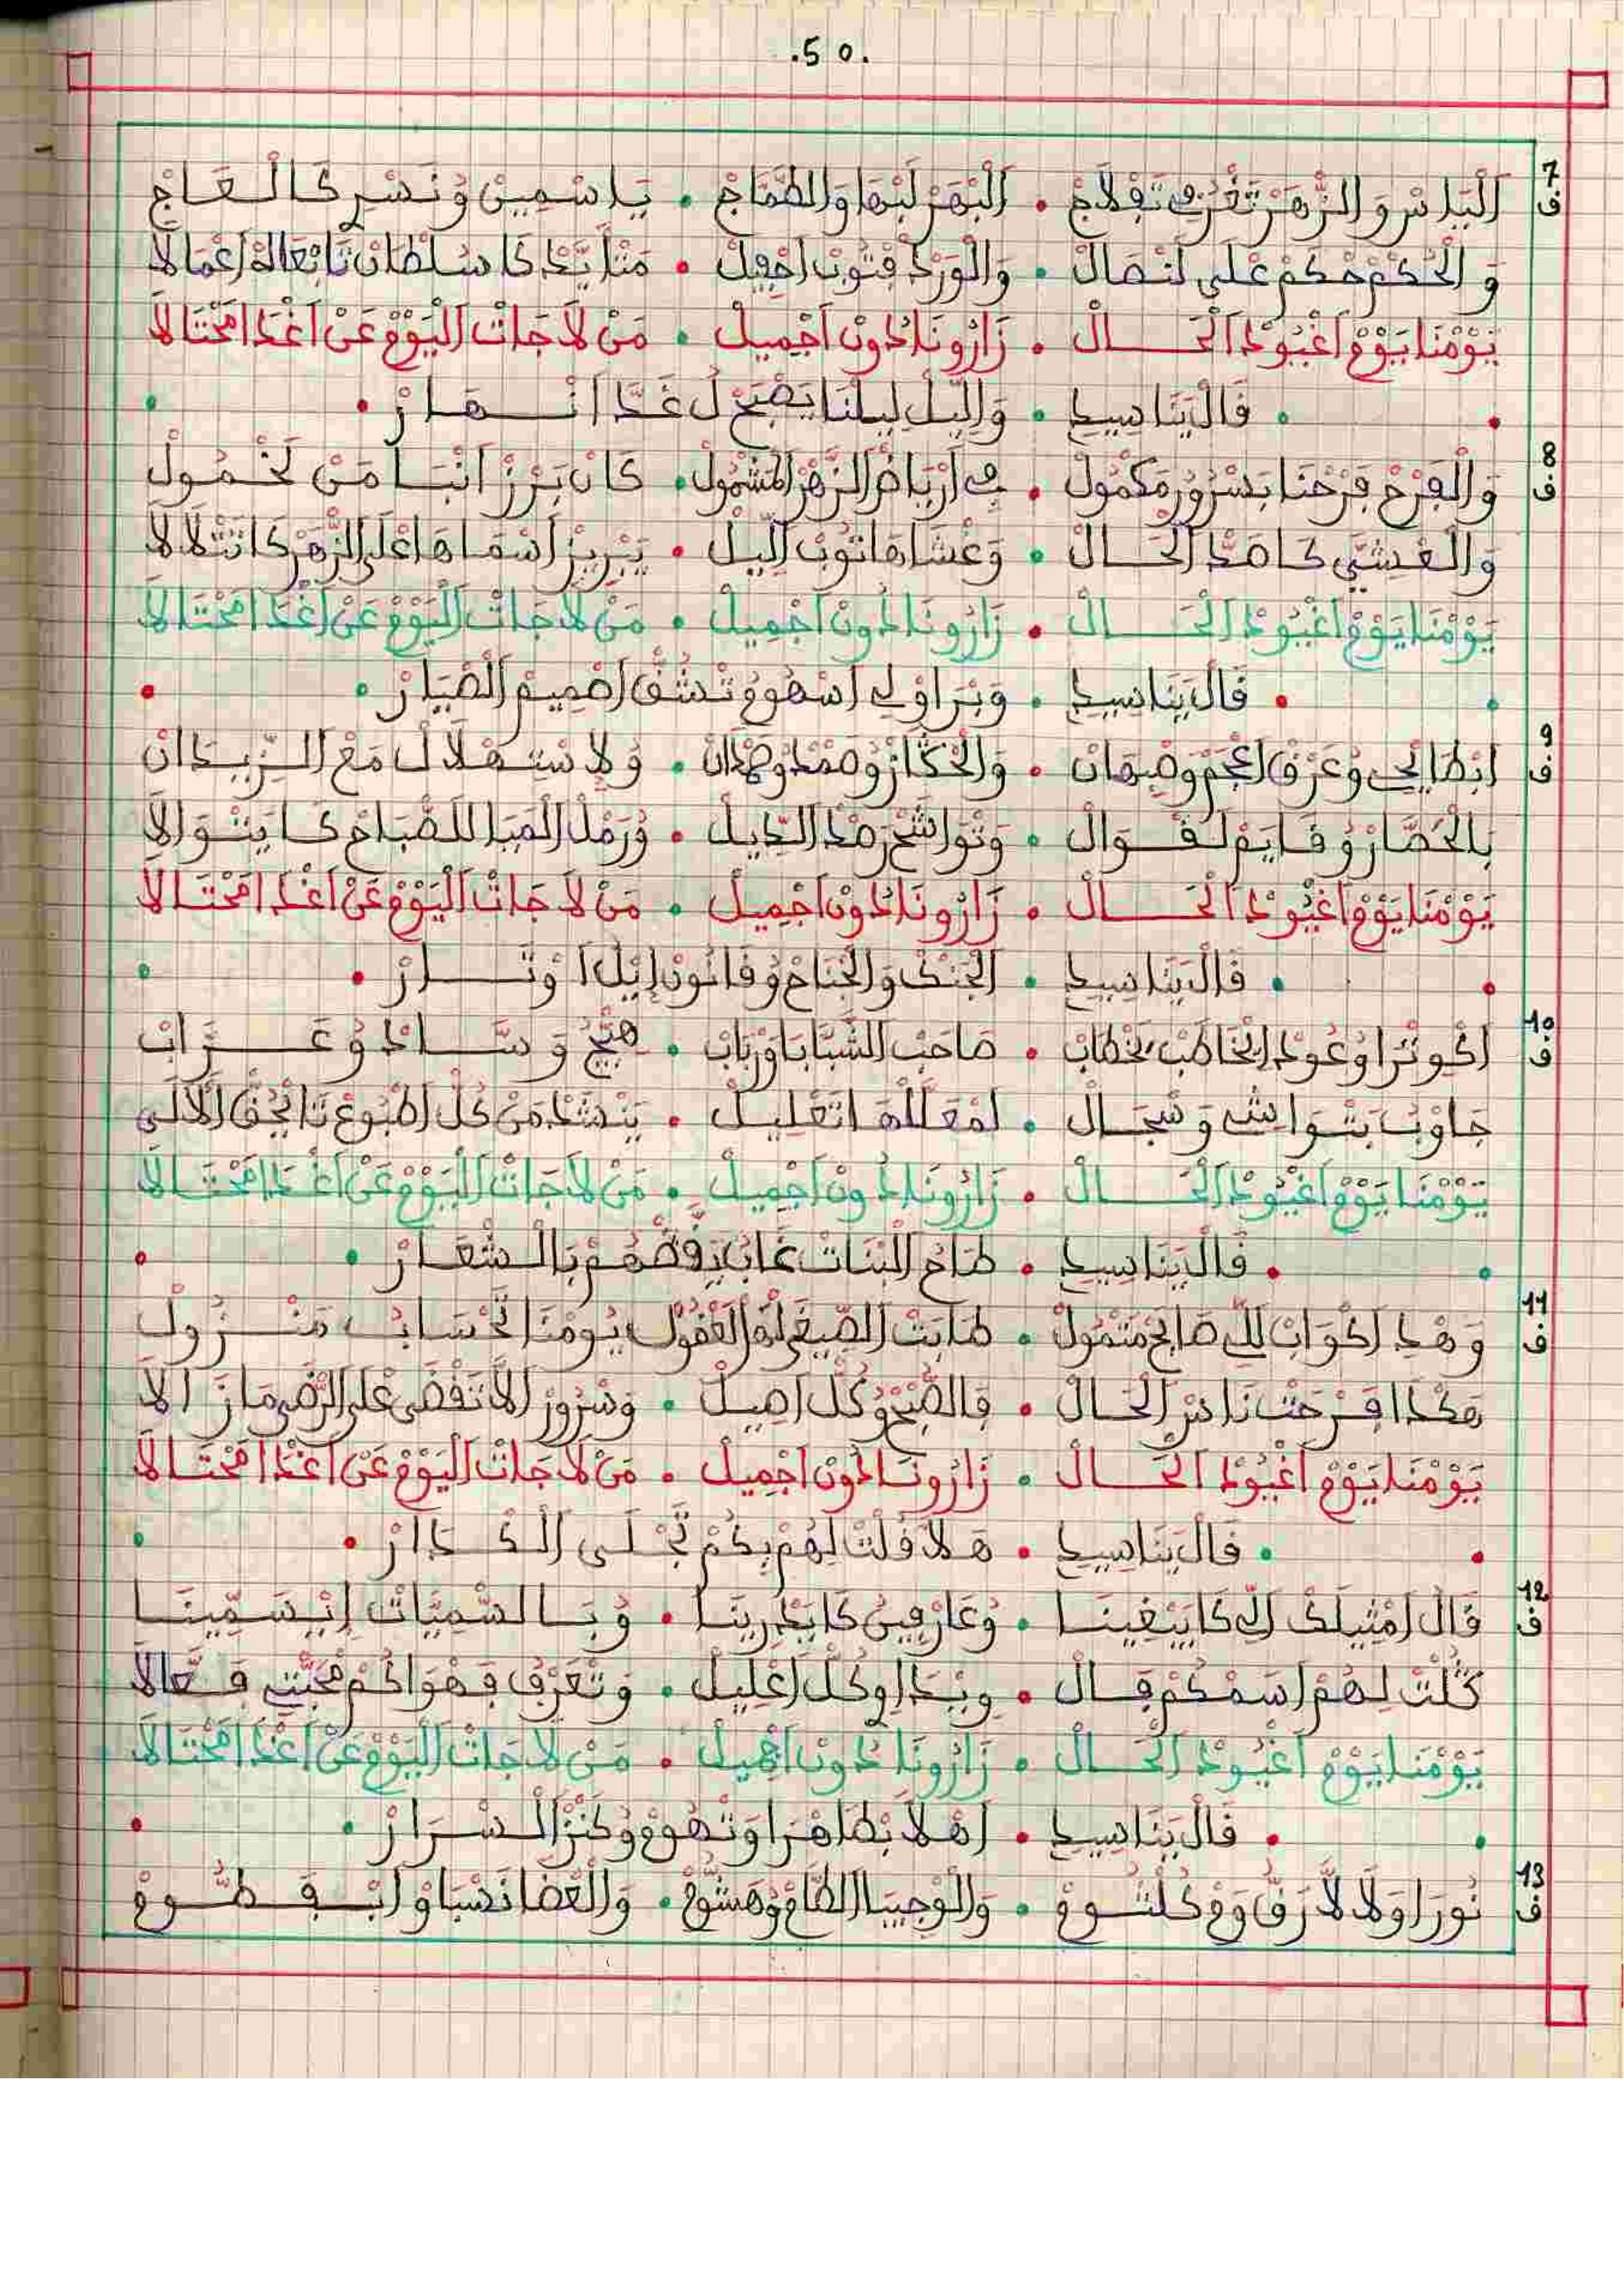 .50.
7 ف اَلْيَاسْ وَالزّْهَرْ تَغْرُ ف تَفْلَاجْ • اَلْبْهَرْ لَبْهَا وَالطُّمَّاجْ • يَاسْمِينْ وُنَسْرِ كَالْعَاجْ
وَالْحُكَمْ حْكَمْ عْلَى لَنْصَالْ • وَالْوَرْدْ فْتُوبْ اَحْفِيلْ • مَتْأَيَّدْ كَا سُلْطَانْ تَابْعَاهْ اَعْمَالَا
يَوْمْنَا يَوْمْ اَغْيُودْ اَلْحَـالْ • زَارُونَا خُودْ اَجْمِيلْ • مَنْ لَا جَاتْ اَلْيَوْمْ عَنْ اَغْدَا مَحْتَالَا
• فَالْ بَنَاسِيدِ • وَاللِّيلْ لِيلْنَا يَصْبَحْ لْ غَدَّا اَنْـهَـارْ •
8 ف وَالْفَرْحْ فَرْحْنَا بَسْرُورْ مَكْمُولْ • فِ اَرْيَاضْ الزّْهَرْ الْمَشْمُولْ • كَانْ بَرْزْ اَنْبَا مَنْ لَخْمُولْ
وَالْعْشِيِّ كَاهَدْ اَلْحَـالْ • وَغْشَاهَا تُوبْ اللِّيلْ • يَبْرِيزْ اَسْمَاهَا عْلَى الزّْهَرْ كَاتَتْلَالَا
يَوْمْنَا يَوْمْ اَغْيُودْ اَلْحَـالْ • زَارُونَا خُودْ اَجْمِيلْ • مَنْ لَا جَاتْ اَلْيَوْمْ عَنْ اَغْدَا مَحْتَالَا
• فَالْ بَنَاسِيدِ • وَبْرَاوْلِ اَسْهُومْ تْشُقّْ اَصْمِيمْ اَلْضْيَارْ •
9 ف اَبْطَايْحِي وُعَرْقْ اَعْجَمْ وصْبَهَانْ • وَالْحْگَازْ وُهَمْدْ وهَمْدَانْ • وُلَاسْتَهْلَالْ مَعْ اَلزِّيدَانْ
بِالْحْصَارْ وُقَايَمْ لَقْـوَالْ • وَتْوَاشَحْ رَصْدْ اَلدِّيلْ • وُرَمْلْ اَلْمَيَا لَلصّْبَاحْ كَا يَتْوَالَا
يَوْمْنَا يَوْمْ اَغْيُودْ اَلْحَـالْ • زَارُونَا خُودْ اَجْمِيلْ • مَنْ لَا جَاتْ اَلْيَوْمْ عَنْ اَغْدَا مَحْتَالَا
• فَالْ بَنَاسِيدِ • اَلْجَنْكْ وَالْجْنَاحْ وُقَانُونْ اِيلْ اَوْتَـارْ •
10 ف اَكْوِتْرَا وُعُودْ اِيخَاطَبْ بَخْطَابْ • صَاحَبْ الشَّبَّابَا وَرْبَابْ • هِيَّجْ وَسَّـادْ وُغَـرَّابْ
جَاوْبْ بَتْوَاشِي وَسْجَالْ • لَمْعَلَّلْهَا تَعْلِيلْ • يَنْشَدْ مَنْ كُلّْ اَطْبُوعْ تَايْحُقّْ اَلْآلَى
يَوْمْنَا يَوْمْ اَغْيُودْ اَلْحَـالْ • زَارُونَا خُودْ اَجْمِيلْ • مَنْ لَا جَاتْ اَلْيَوْمْ عَنْ اَغْدَا مَحْتَالَا
• فَالْ بَنَاسِيدِ • طَاحْ الْبْنَاتْ غَابْ يَرْقَصْهُمْ بَالْـشْعَـارْ •
11 ف وَهْدِ اَكْوَابْ اللِّ صَايَحْ مَتْمُولْ • طَابَتْ الصِّيغَى لَهْ الْعْقُولْ يُومْنَا تَحْسَابُ مَنْـزُولْ
هَكْدَا فَـرْجَتْ نَاسْ الْحَـالْ • فَالصُّبْحْ وُكُلّْ اَصِيلْ • وَسْرُورْ اَلَّا تَفْضَى عْلَى الرّْضَى مَازَالَا
يَوْمْنَا يَوْمْ اَغْيُودْ اَلْحَـالْ • زَارُونَا خُودْ اَجْمِيلْ • مَنْ لَا جَاتْ اَلْيَوْمْ عَنْ اَغْدَا مَحْتَالَا
• فَالْ بَنَاسِيدِ • هَلَا قُلْتْ لَهُمْ بِكُمْ تَجْلَى اَلْـكْـدَارْ •
12 ف قَالْ اَمْثِيلَكْ اَلِّ كَايَبْغِينَـا • وُعَارْفِينْ كَايَدْرِينَا • وُبَـالسْمِيَّاتْ اِيْسَمِّينَـا
كُلْتْ لَهُمْ اَسَمْكُمْ قَالْ • وِيْدَاوِ كُلّْ اَعْلِيلْ • وَتْعَرْفْ فَهْوَاكُمْ مْحَبَّتِ فَـعَّالَا
يَوْمْنَا يَوْمْ اَغْيُودْ اَلْحَـالْ • زَارُونَا خُودْ اَجْمِيلْ • مَنْ لَا جَاتْ اَلْيَوْمْ عَنْ اَغْدَا مَحْتَالَا
• فَالْ بَنَاسِيدِ • اَهْلَا بْطَاهْرَا وَتْهُومْ وُكَنْزْ اَلْـسْرَارْ •
13 ف نُورَا وَلَالَّا رَقّْ وَمْ كُلْتُـومْ • وَالْوَجِيبَا الطَّامْ وُهَشُّومْ • وَالْغْضَا نَسْبَاوْ اَبْـفَـطُّـومْ